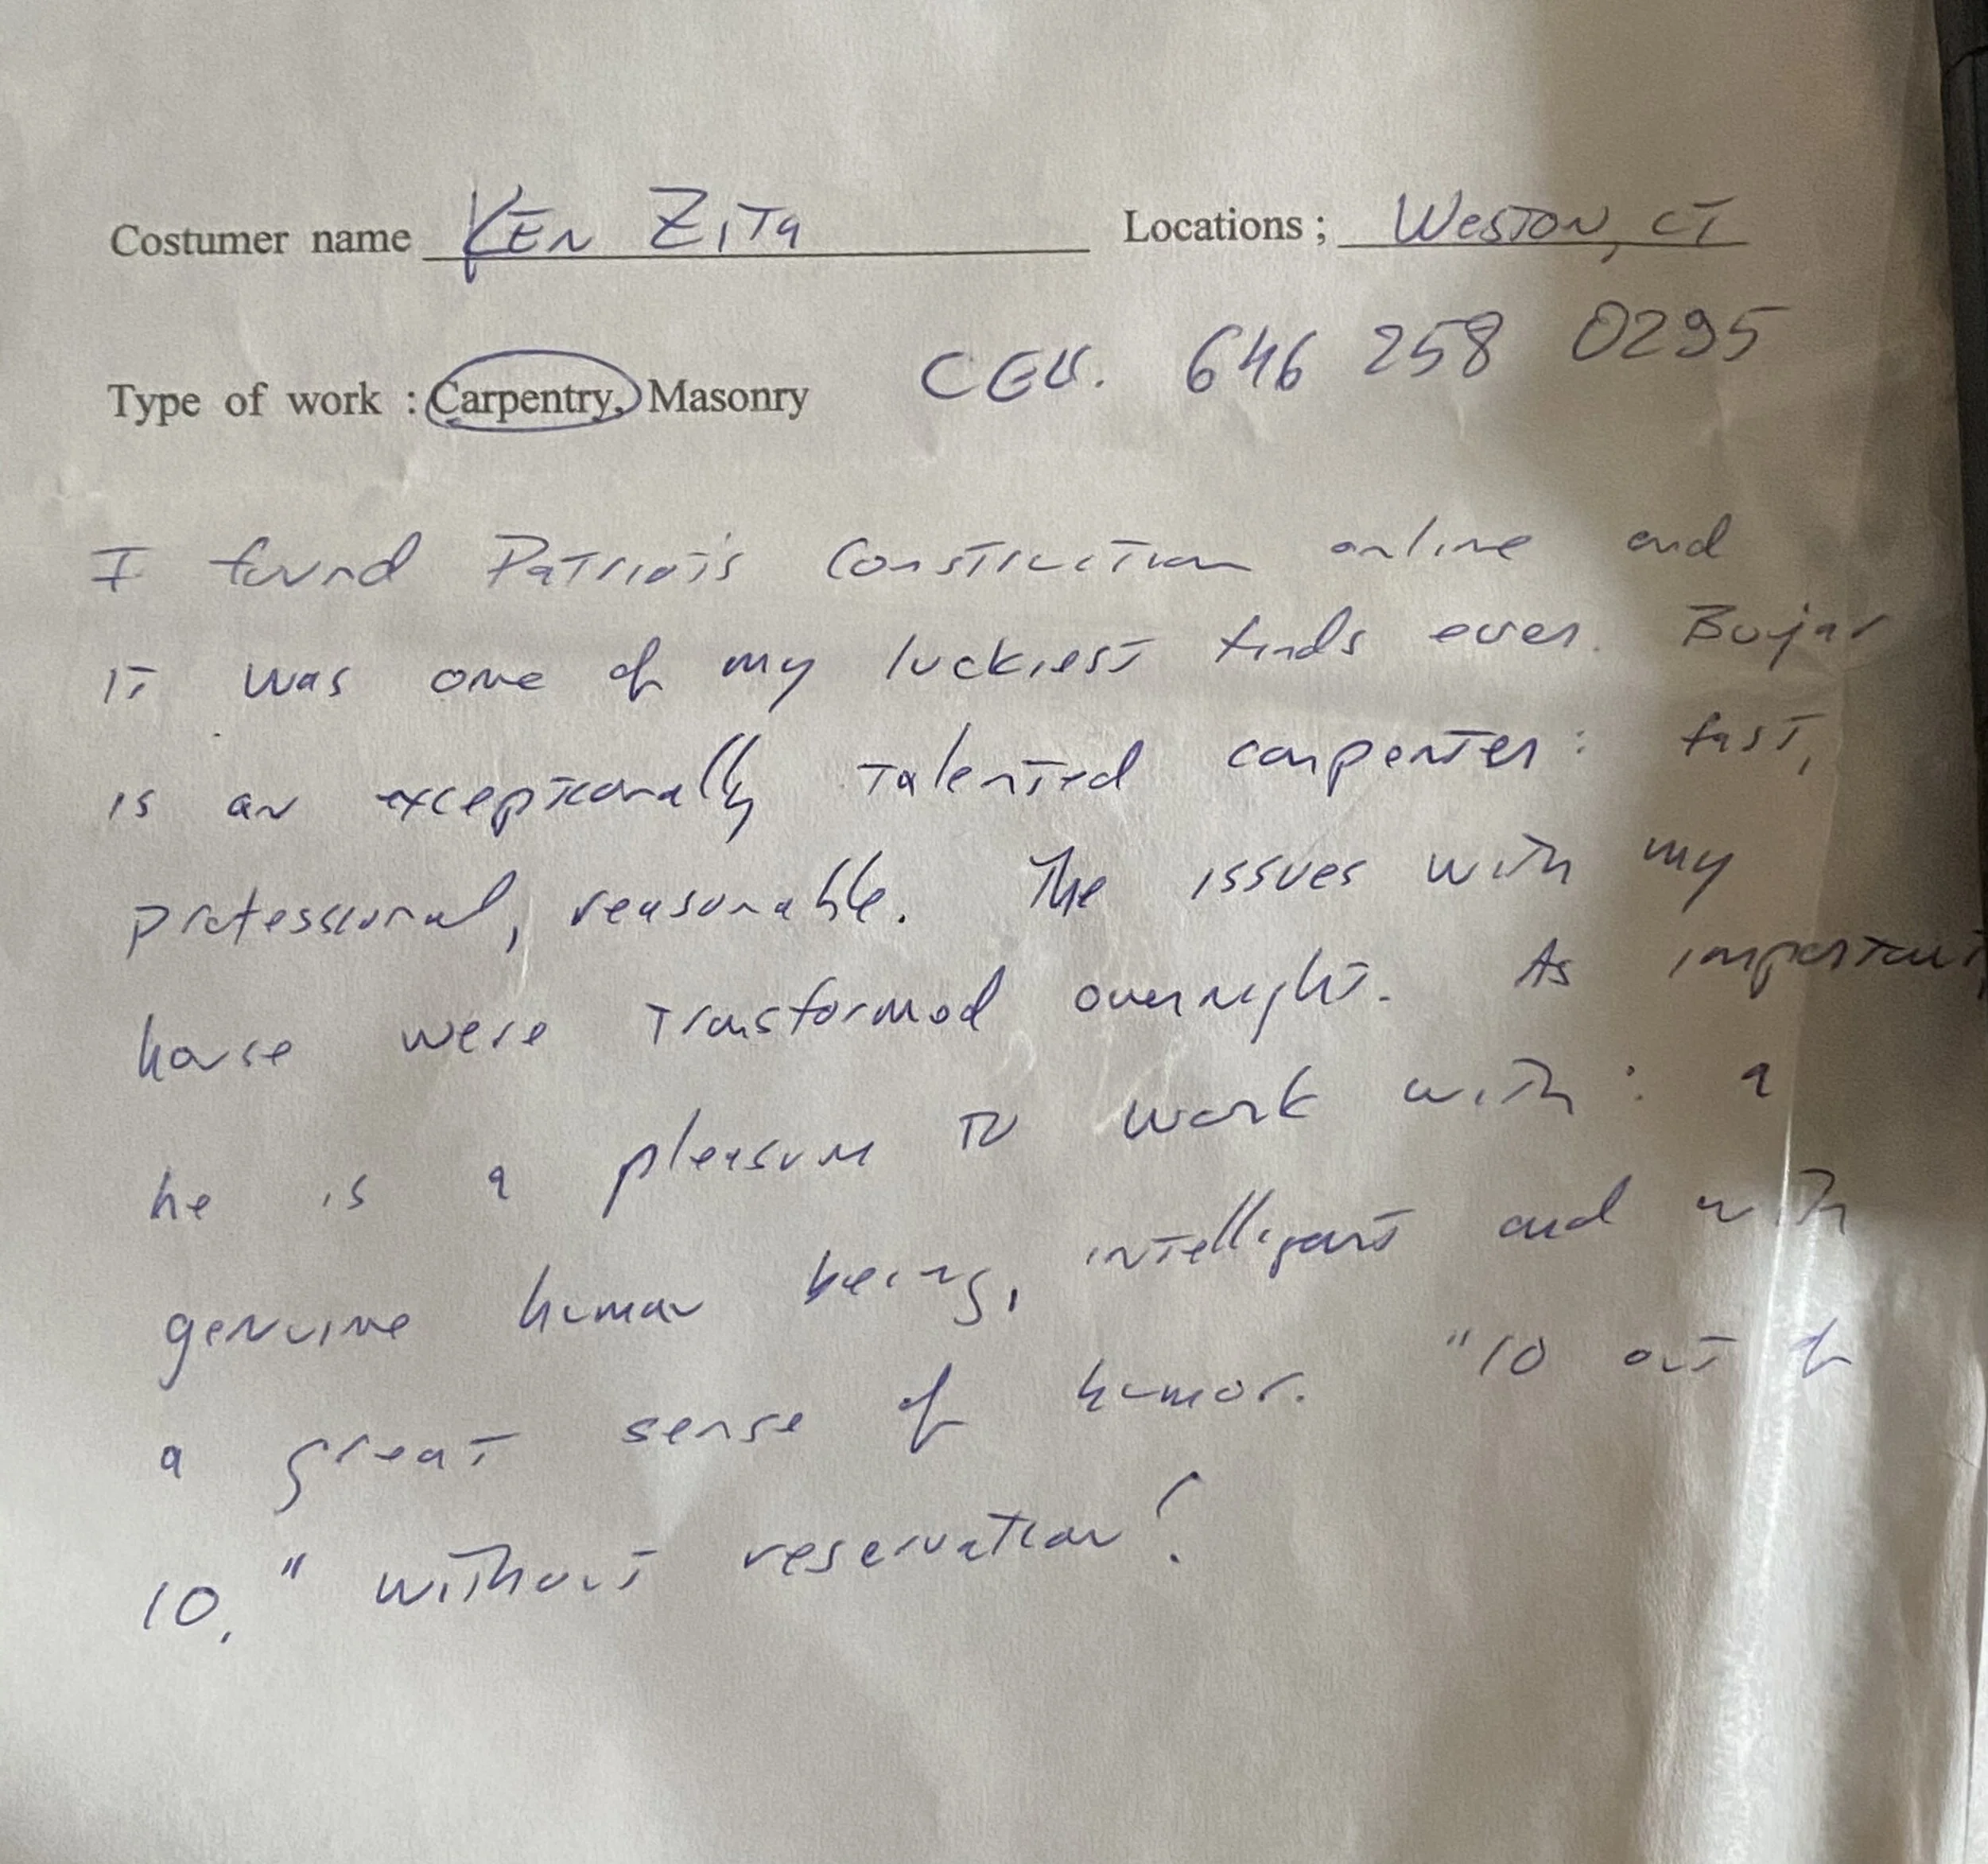 Costumer name KEN ZITA Locations ; WESTON, CT
Type of work : Carpentry, Masonry CELL. 646 258 0295
I found Patriots Construction online and
it was one of my luckiest finds ever. Bujar
is an exceptionally talented carpenter: fast,
professional, reasonable. The issues with my
house were transformed overnight. As important,
he is a pleasure to work with: a
genuine human being, intelligent and with
a great sense of humor. "10 out of
10," without reservation!